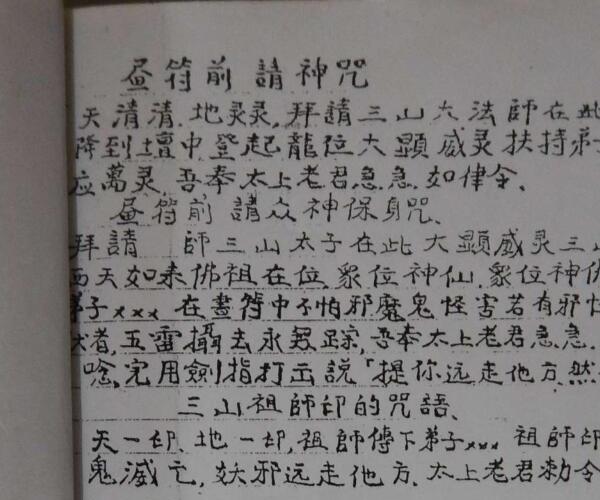 昼符前請神咒
天清清,地灵灵,拜請三山六法師在此
降到壇中,登起龍位大顯威灵扶持弟子
应萬灵,吾奉太上老君急急,如律令、
昼符前請众神保身咒、
拜請 師三山太子在此大顯威灵三山
西天如来佛祖在位,象位神仙,象位神佛
弟子xxx在畫符中不怕邪魔鬼怪害若有邪怪
者,五雷攝去永無踪,吾奉太上老君急急、
唸完用劍指打出説「提你远走他方,然
三山祖師印的咒語、
天一印、地一印,祖師傳下弟子xxx祖師印
鬼滅亡,妖邪远走他方、太上老君勅令